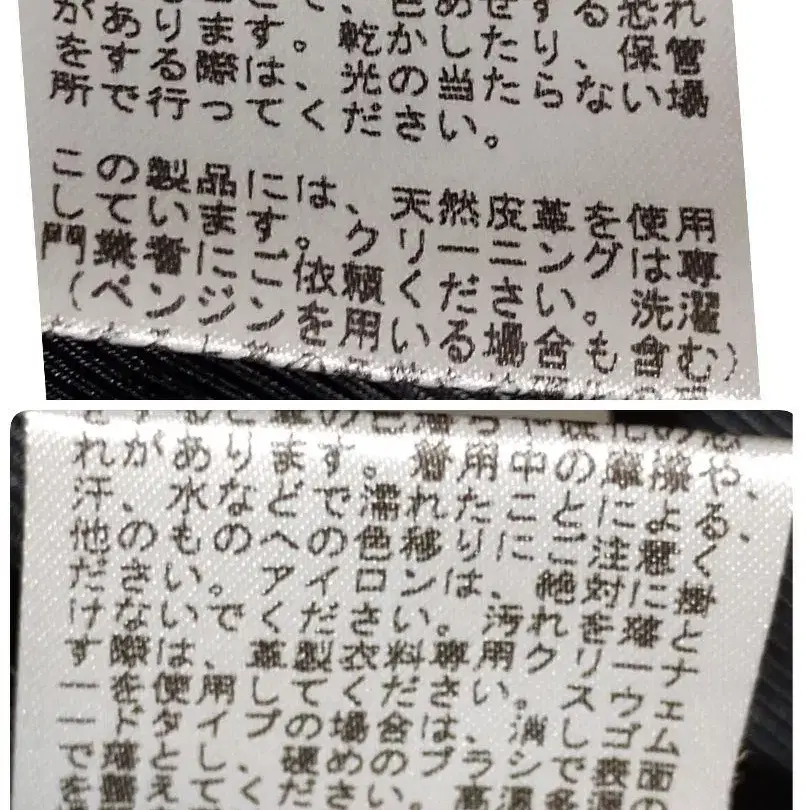 色あせする恐れ
があります。乾かしたり、保管
をする際は、光の当たらない場
所で行ってください。
この製品には、天然皮革を使用
しています。クリーニングは専
門業者にご依頼ください。洗濯
(ベンジンを用いる場合も含む)
れがあります。着用中の摩擦や、
汗、水などで濡れたことによる
他のものへの色移りにご注意く
ださい。アイロンは、絶対に掛
けないでください。汚れを落と
す際は、革製衣料専用クリーナ
ーを使用してください。スウェ
ードタイプの場合は、消しゴム
で落として、硬めのブラシで表面
を整えてください。高温多湿の